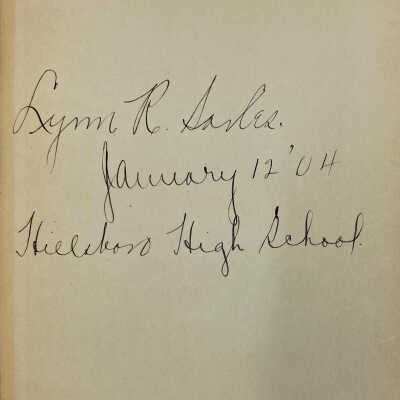 Lynn R. Sarles.
January 12 '04
Hillsboro High School.